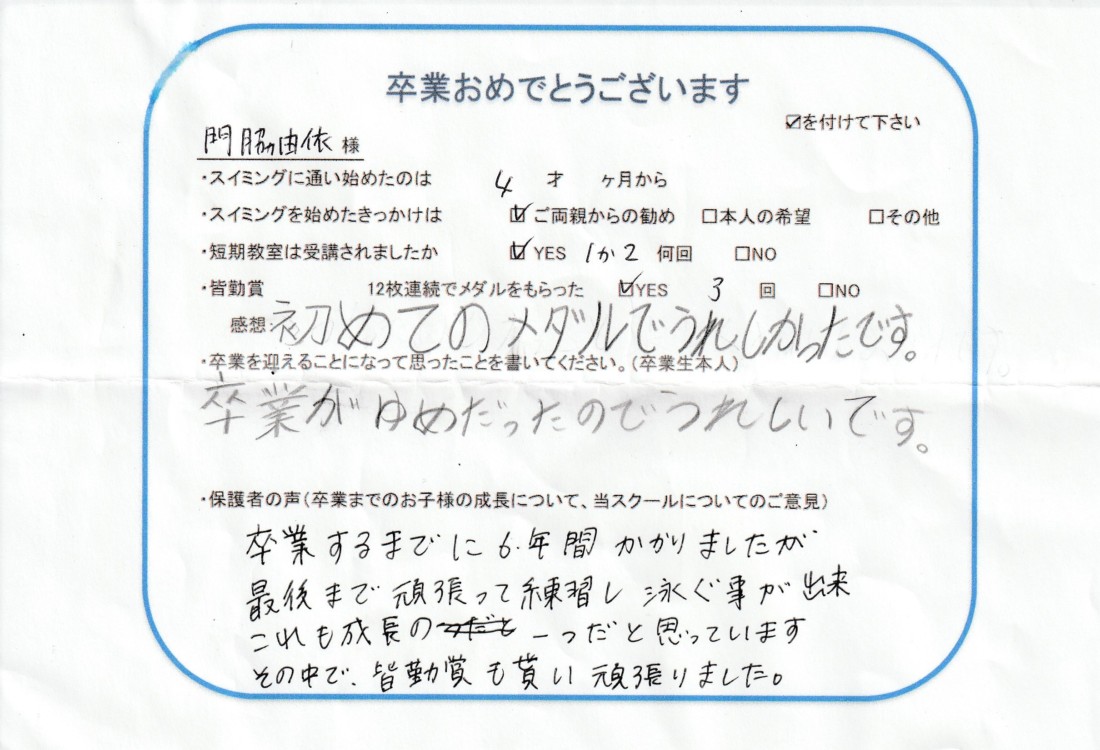 卒業おめでとうございます
☑を付けて下さい
門脇由依 様
・スイミングに通い始めたのは 4 才 ヶ月から
・スイミングを始めたきっかけは ☑ご両親からの勧め □本人の希望 □その他
・短期教室は受講されましたか ☑YES 1か2 何回 □NO
・皆勤賞 12枚連続でメダルをもらった ☑YES 3 回 □NO
感想 初めてのメダルでうれしかったです。
・卒業を迎えることになって思ったことを書いてください。(卒業生本人)
卒業がゆめだったのでうれしいです。
・保護者の声(卒業までのお子様の成長について、当スクールについてのご意見)
卒業するまでに6年間かかりましたが
最後まで頑張って練習し泳ぐ事が出来
これも成長の一つだと思っています
その中で、皆勤賞も貰い頑張りました。